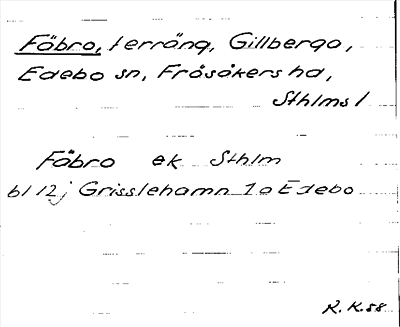 Fäbro, terräng, Gillberga,
Edebo sn, Frösåkers hd,
Sthlms l
Fäbro ek Sthlm
bl 12j Grisslehamn 1a Edebo
R. K. 58